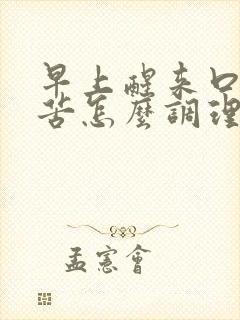 早上醒来口
苦怎麼調理
孟憲會